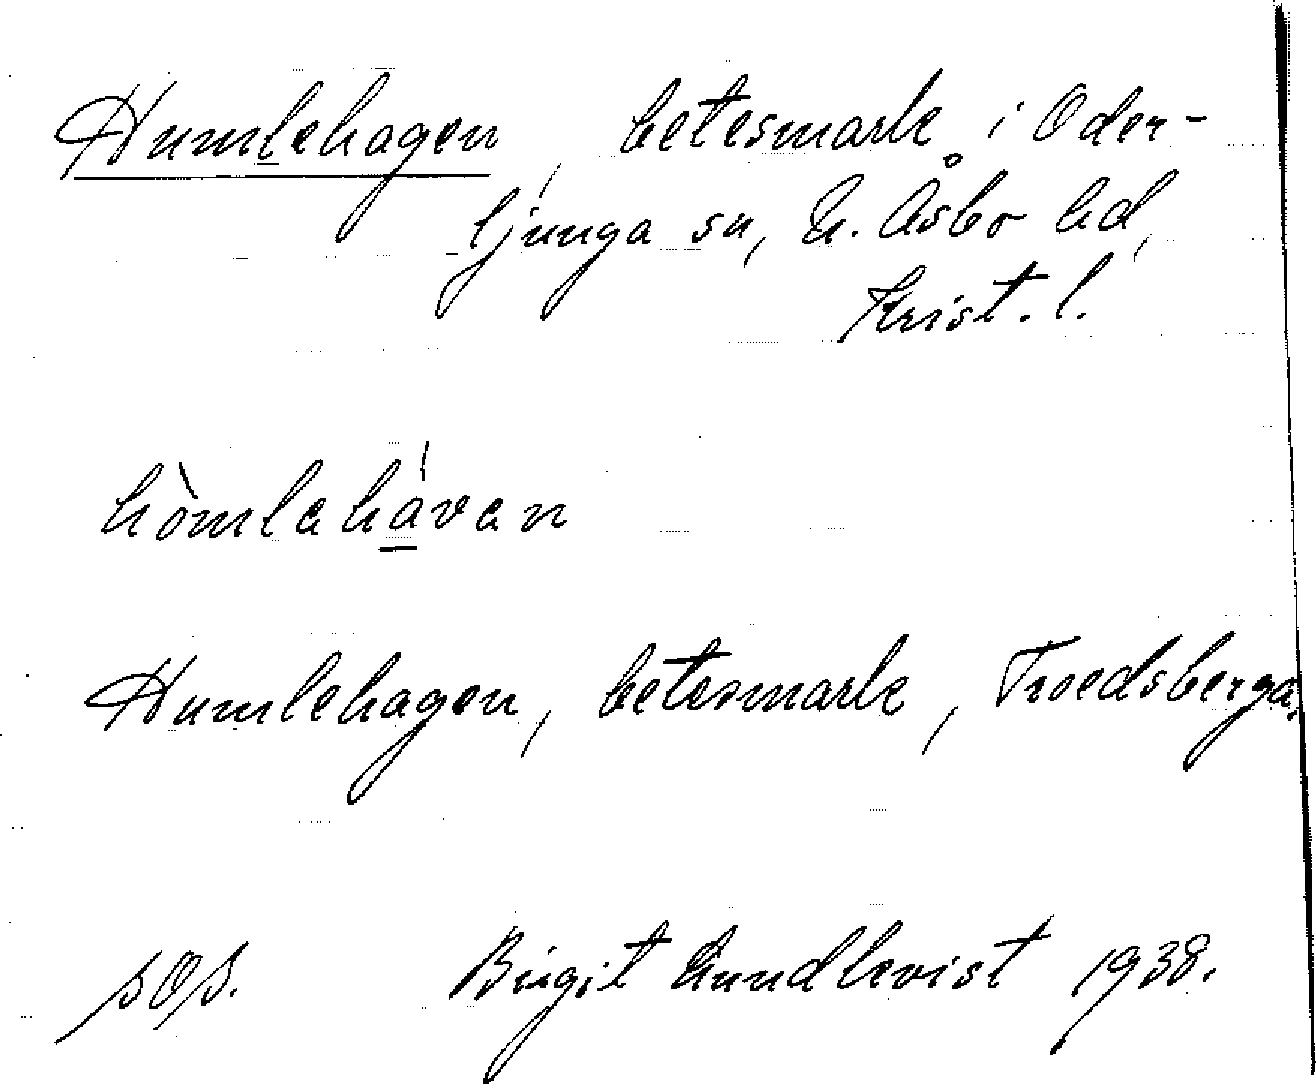 Humlehagen, betesmark i Oder-
ljunga sn, N. Åsbo hd,
Krist. l.
hòmlahávan
Humlehagen, betesmark, Troedsberga.
SOS. Birgit Lundkvist 1938.